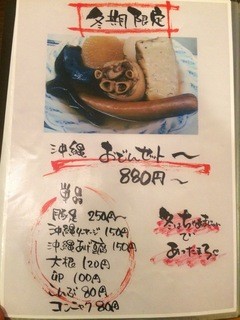 冬期限定
沖縄 おでんセット〜
880円〜
単品
豚足 250円〜
沖縄ソーセージ 150円
沖縄あげ豆腐 150円
大根 120円
卵 100円
こんぶ 80円
コンニャク 80円
で
あったまろ